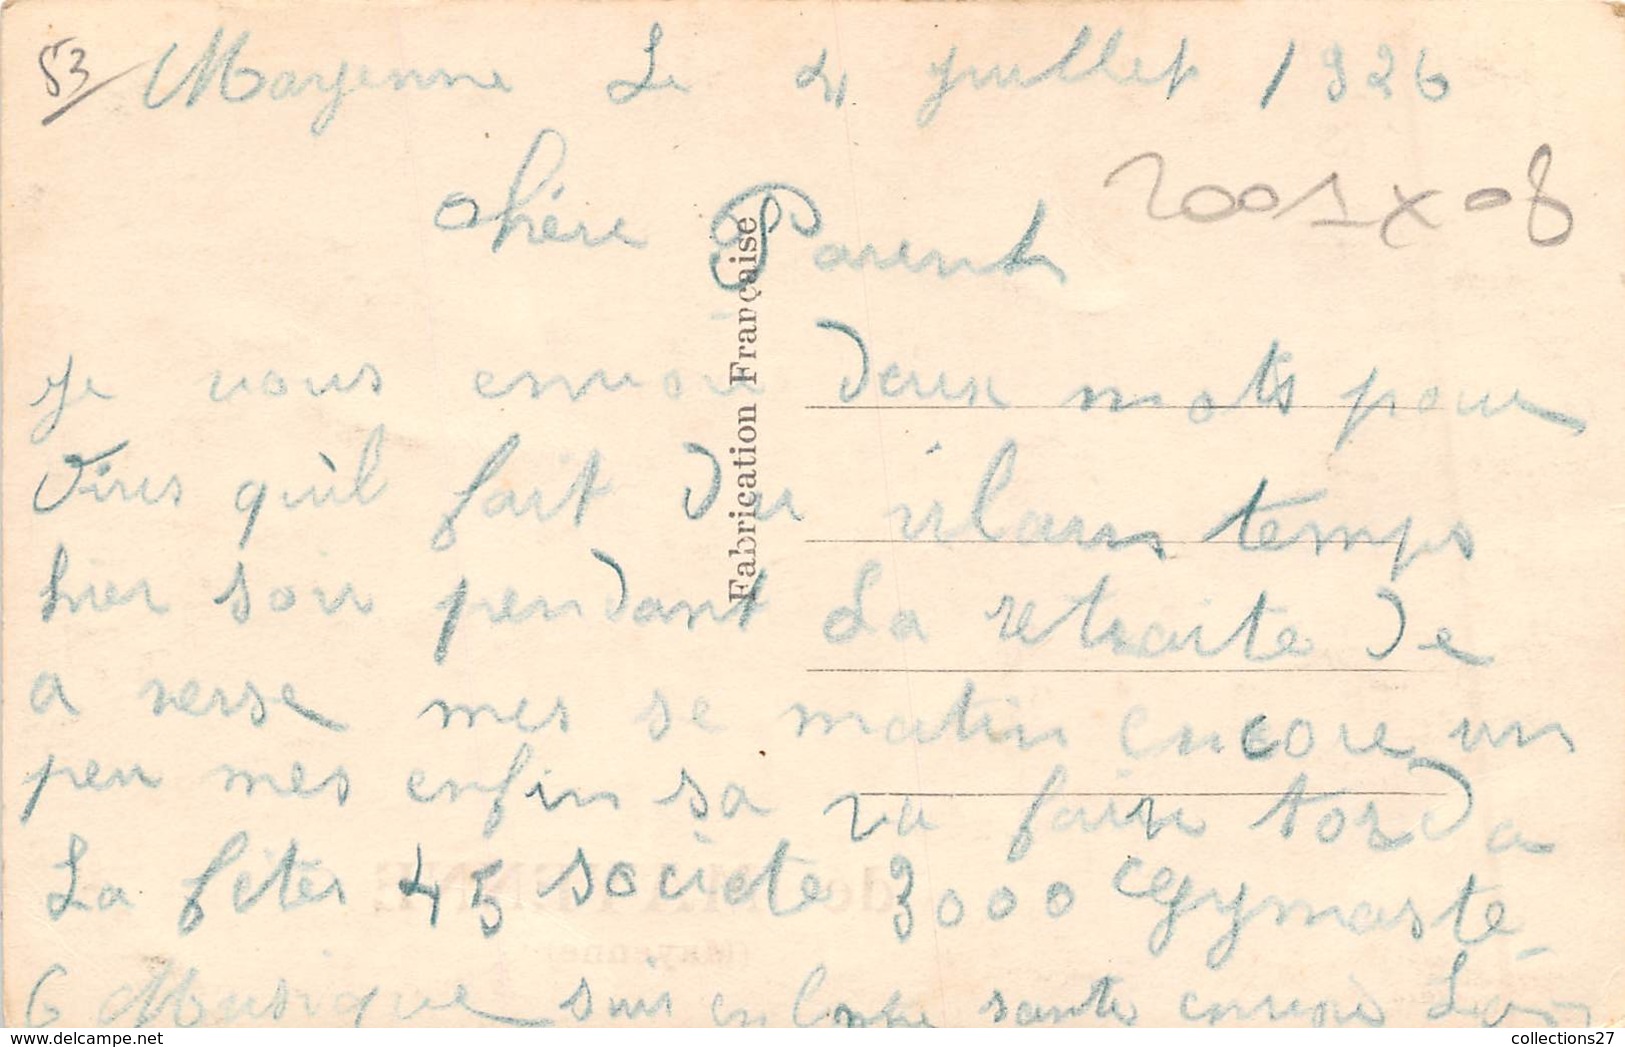 53 Mayenne Le 4 Juillet 1926
2001 x-08
chère Parents
Fabrication Française
Je vous envoie deux mots pour
dires qu'il fait du vilains temps
hier soir pendant La retraite de
a verse mes se matin encore un
peu mes enfin sa va faire
La fêtes 45 societe 3000 gymaste
6 Musique suis en bonne sante
collections27